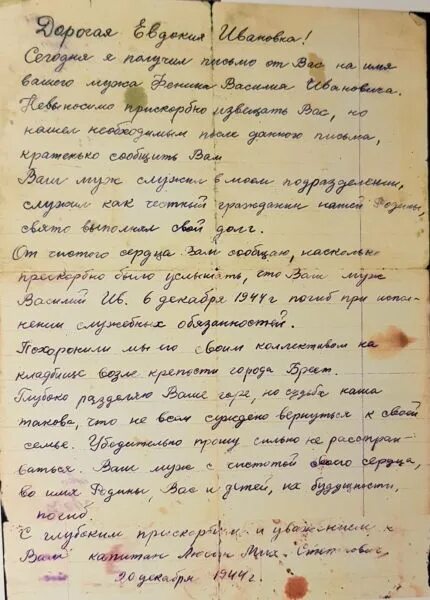 Дорогая Евдокия Ивановка!
Сегодня я получил письмо от Вас на имя
вашего мужа Фенина Василия Ивановича.
Невыносимо прискорбно извещать Вас, но
нашел необходимым после данного письма,
кратенько сообщить Вам
Ваш муж служил в моем подразделении,
служил как честный гражданин нашей Родины,
свято выполнял свой долг.
От чистого сердца Вам сообщаю, насколько
прескорбно было услышать, что Ваш муж
Василий Ив. 6 декабря 1944 г погиб при испол-
нении служебных обязанностей.
Похоронили мы его своим коллективом на
кладбище возле крепости города Брест.
Глубоко разделяю Ваше горе, но судьба наша
такова, что не всем суждено вернуться к своей
семье. Убедительно прошу сильно не расстраи-
ваться. Ваш муж с чистотой своего сердца,
во имя Родины, Вас и детей, их будущности,
погиб.
С глубоким прискорбием и уважением к
Вам капитан Мих.
20 декабря 1944 г.